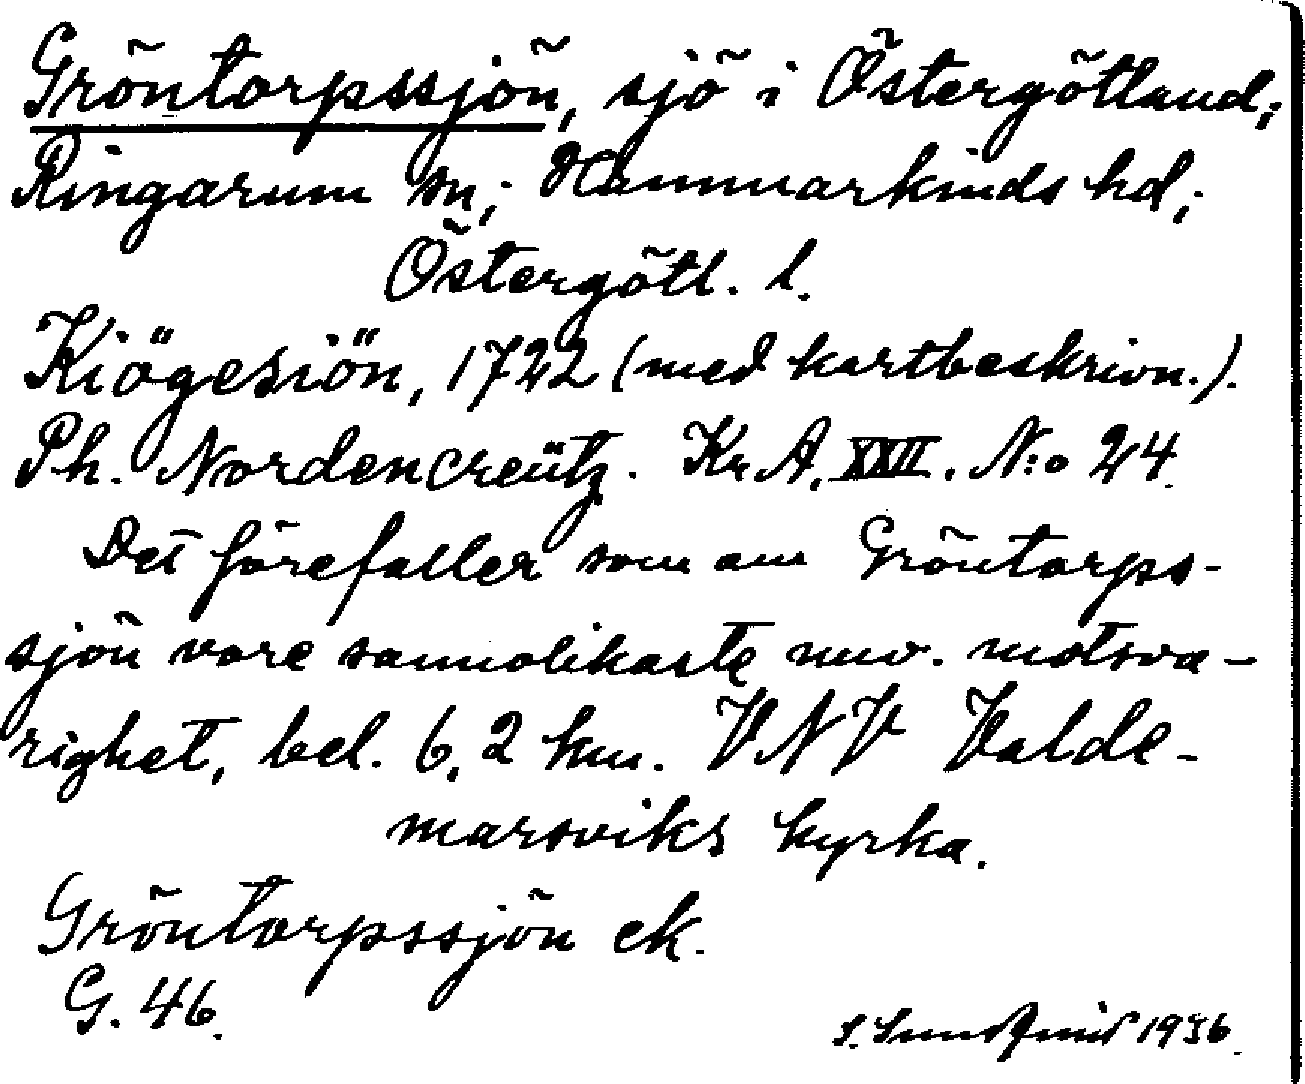 Gröntorpssjön, sjö i Östergötland;
Ringarum sn; Hammarkinds hd;
Östergötl. l.
Kiögesiön, 1722 (med kartbeskrivn.).
Ph. Nordencreütz. Kr A. XXII. N:o 24.
Det förefaller som om Gröntorps-
sjön vore sannolikaste nuv. motsva-
righet, bel. 6,2 km. VNV Valde-
marsviks kyrka.
Gröntorpssjön ek.
G. 46.
1936.